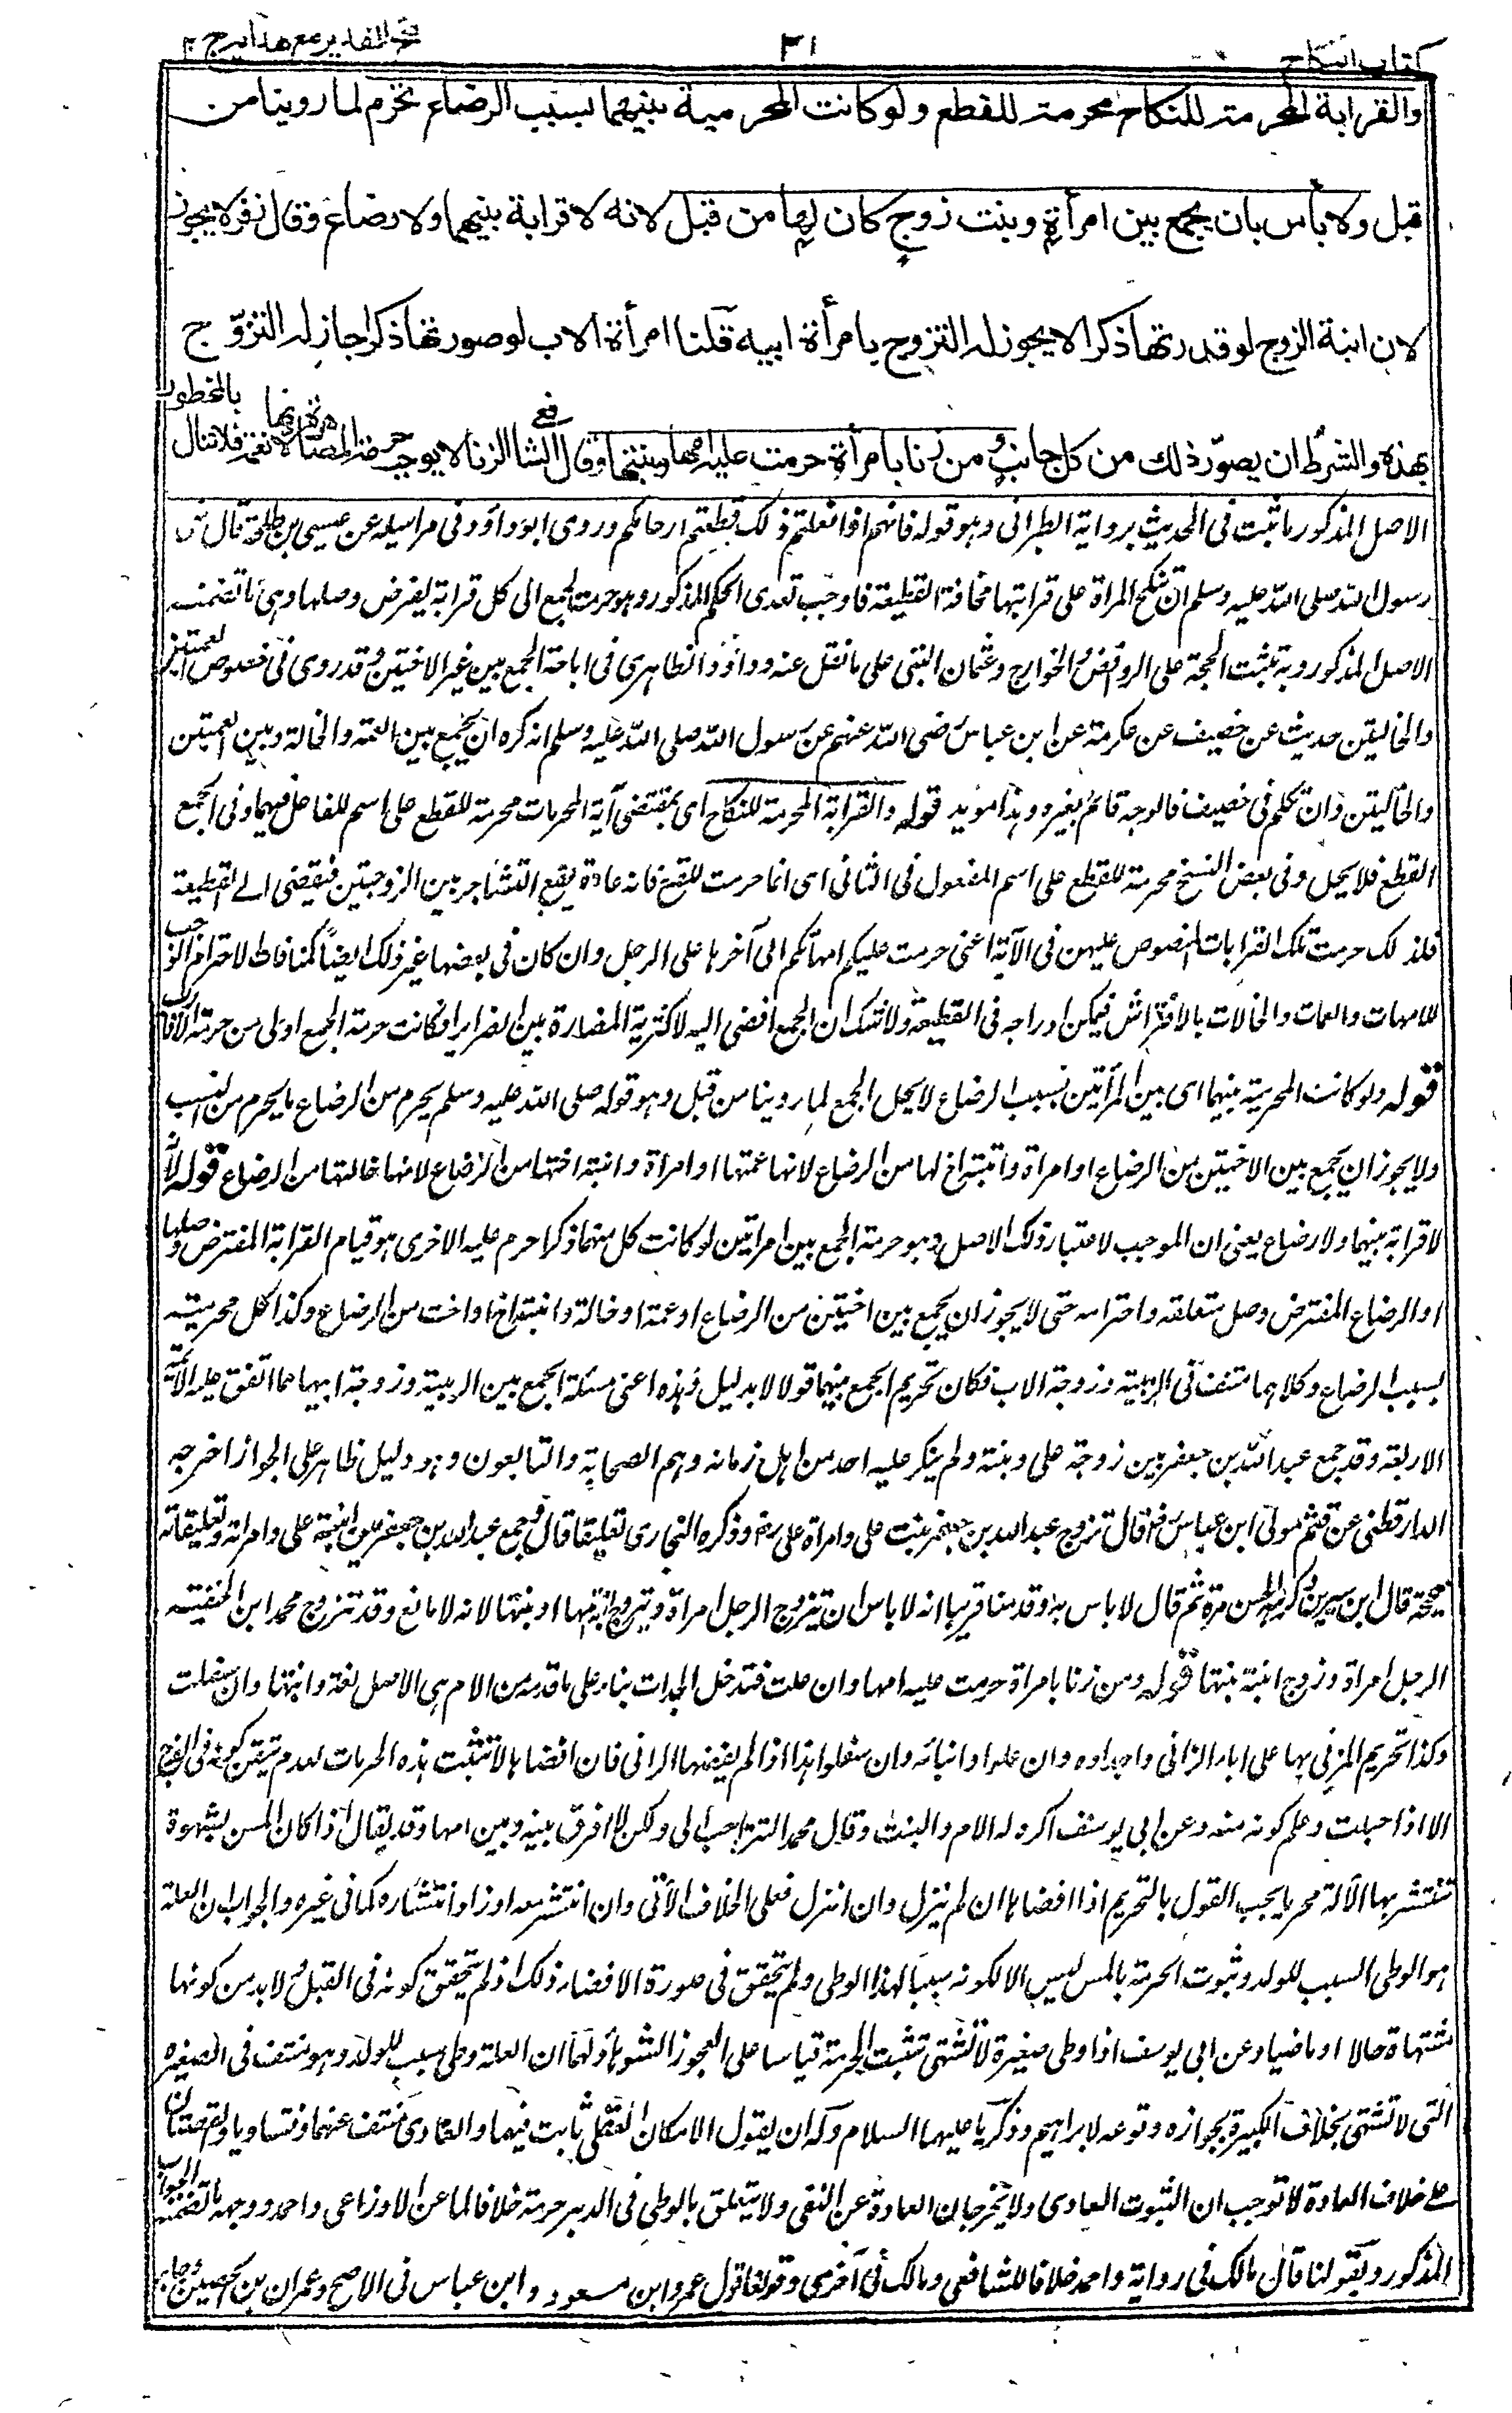 كتاب النكاح
٣١
فتح القدير مع هدايه ج ٢
والقرابة المحرمة للنكاح محرمة للقطع ولو كانت المحرمية بينهما بسبب الرضاع تحرم لما روينا من
قبل ولا بأس بان يجمع بين امرأة وبنت زوج كان لها من قبل لانه لا قرابة بينهما ولا رضاع وقال زفر لا يجوز
لان ابنة الزوج لو قدرتها ذكرا لا يجوز له التزوج بامرأة ابيه قلنا امرأة الاب لو صورتها ذكرا جاز له التزوج
بهذه والشرط ان يصور ذلك من كل جانب ومن زنا بامرأة حرمت عليه امها وبنتها وقال الشافعي الزنا لا يوجب حرمة المصاهرة لانها نعمة فلا تنال بالمحظور
الاصل المذكور ما ثبت فى الحديث برواية الطبرانى وهو قوله فانهم اذا فعلتم ذلك قطعتم ارحامكم وروى ابوداود فى مراسيله عن عيسى بن طلحة قال نهى
رسول الله صلى الله عليه وسلم ان تنكح المراة على قرابتها مخافة القطيعة فاوجب تعدى الحكم المذكور وهو حرمة الجمع الى كل قرابة يفرض وصلها وهى ما تضمنه
الاصل المذكور وبه تثبت الحجة على الروافض والخوارج وعثمان البتى على ما نقل عنه وداود الظاهرى فى اباحة الجمع بين غير الاختين وقد روى فى خصوص العمتين
والخالتين حديث عن خصيف عن عكرمة عن ابن عباس رضى الله عنهم عن رسول الله صلى الله عليه وسلم انه كره ان يجمع بين العمة والخالة وبين العمتين
والخالتين وان تكلم فى خصيف فالوجه قائم بغيره وهذا مويد قوله والقرابة المحرمة للنكاح اى بمقتضى آية المحرمات محرمة للقطع على اسم الفاعل فيهما وفى الجمع
القطع فلا يحل وفى بعض النسخ محرمة للقطع على اسم المفعول فى الثانى اى انما حرمت للقطع فانه عادة يقع التشاجر بين الزوجتين فيفضى الى القطيعة
فلذلك حرمت تلك القرابات المنصوص عليهن فى الآية اعنى حرمت عليكم امهاتكم الى آخرها على الرجل وان كان فى بعضها غير ذلك ايضا كمنافاة الاحترام الواجب
للامهات والعمات والخالات بالافتراش فيمكن ادراجه فى القطيعة ولا شك ان الجمع افضى اليه لاكثرية المضارة بين الضرائر فكانت حرمة الجمع اولى من حرمة الاقارب
قوله ولو كانت المحرمية بينهما اى بين المرأتين بسبب الرضاع لا يحل الجمع لما روينا من قبل وهو قوله صلى الله عليه وسلم يحرم من الرضاع ما يحرم من النسب
ولا يجوز ان يجمع بين الاختين من الرضاع او امراة وابنة اخ لها من الرضاع لانها عمتها او امراة وابنة اختها من الرضاع لانها خالتها من الرضاع قوله لانه
لا قرابة بينهما ولا رضاع يعنى ان الموجب لاعتبار ذلك الاصل وهو حرمة الجمع بين امراتين لو كانت كل منهما ذكرا حرم عليه الاخرى هو قيام القرابة المفترض وصلها
او الرضاع المفترض وصل متعلقه واحترامه حتى لا يجوز ان يجمع بين اختين من الرضاع او عمة او خالة وابنة اخ او اخت من الرضاع وكذا كل محرمية
بسبب الرضاع وكلاهما منتف فى الربيبة وزوجة الاب فكان تحريم الجمع بينهما قولا لا بدليل وهذه اعنى مسئلة الجمع بين الربيبة وزوجة ابيها مما اتفق عليه الائمة
الاربعة وقد جمع عبد الله بن جعفر بين زوجة على وبنته ولم ينكر عليه احد من اهل زمانه وهم الصحابة والتابعون وهو دليل ظاهر على الجواز اخرجه
الدارقطنى عن قثم مولى ابن عباس رض قال تزوج عبد الله بن جعفر بنت على وامراة على رض وذكره البخارى تعليقا قال وجمع عبد الله بن جعفر بين ابنة على وامراته وتعليقاته
صحيحة قال ابن سيرين وكرهه الحسن مرة ثم قال لا باس به وقدمنا قريبا انه لا باس ان يتزوج الرجل امراة ويتزوج ابنه امها او بنتها لانه لا مانع وقد تزوج محمد ابن الحنفية
الرجل امراة وزوج ابنه بنتها قوله ومن زنا بامراة حرمت عليه امها وان علت فتدخل الجدات بناء على ما قدمه من الام هى الاصل لغة وابنتها وان سفلت
وكذا تحريم المزنى بها على اباء الزانى واجداده وان علوا وابنائه وان سفلوا هذا اذا لم يفضها الزانى فان افضاها لا تثبت هذه الحرمات لعدم تيقن كونه فى الفرج
الا اذا حبلت وعلم كونه منه وعن ابى يوسف اكره له الام والبنت وقال محمد التنزه احب الى ولكن لا افرق بينه وبين امها وقد يقال اذا كان المس بشهوة
تنتشر بها الآلة محرما يجب القول بالتحريم اذا افضاها ان لم ينزل وان انزل فعلى الخلاف الآتى وان انتشر معه او زاد انتشاره كما فى غيره والجواب ان العلة
هو الوطى السبب للولد وثبوت الحرمة بالمس ليس الا لكونه سببا لهذا الوطى ولم يتحقق فى صورة الافضاء ذلك اذ لم يتحقق كونه فى القبل ولا بد من كونها
مشتهاة حالا او ماضيا وعن ابى يوسف اذا وطى صغيرة لا تشتهى تثبت الحرمة قياسا على العجوز الشوهاء ولهما ان العلة وطى سبب للولد وهو منتف فى الصغيره
التى لا تشتهى بخلاف الكبيرة لجوازه وقوعه لابراهيم وذكريا عليهما السلام وله ان يقول الامكان العقلى ثابت فيهما والعادى منتف عنهما فتساويا والقصتان
على خلاف العادة لا توجب ان الثبوت العادى ولا يخرجان العادة عن النفى ولا يتعلق بالوطى فى الدبر حرمة خلافا لما عن الاوزاعى واحمد ووجهه ما تضمنه الجواب
المذكور وبقولنا قال مالك فى رواية واحمد خلافا للشافعى ومالك فى آخرى وقولنا قول عمر وابن مسعود وابن عباس فى الاصح وعمران بن الحصين وجابر